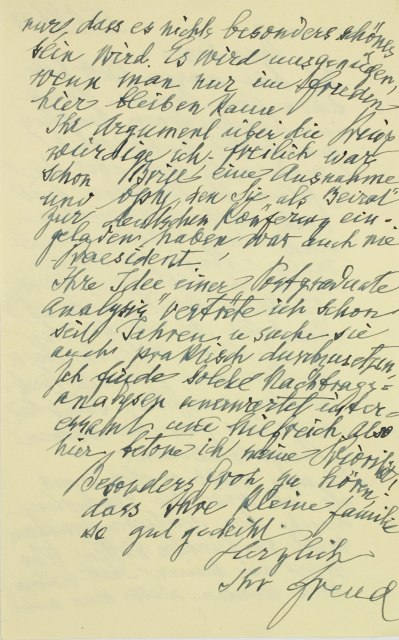 nur, dass es nichts besonders schönes
sein wird. Es wird uns genügen,
wenn man nur im Frieden
hier bleiben kann
Ihr Argument über die
würdige ich - freilich war
schon Brill eine Ausnahme
und Oph., den Sie als "Beirat"
zur deutschen Konferenz ein-
geladen haben war auch nie
Praesident.
Ihre Idee einer "Postgraduate
Analysis" vertrete ich schon
seit Jahren u suche sie
auch praktisch durchzusetzen,
Ich finde solche Nachtrags=
analysen unerwartet inter-
essant und hilfreich. Also
hier betone ich meine Priorität!
Besonders froh zu hören,
dass Ihre kleine Familie
so gut gedeiht.
Herzlich
Ihr Freud